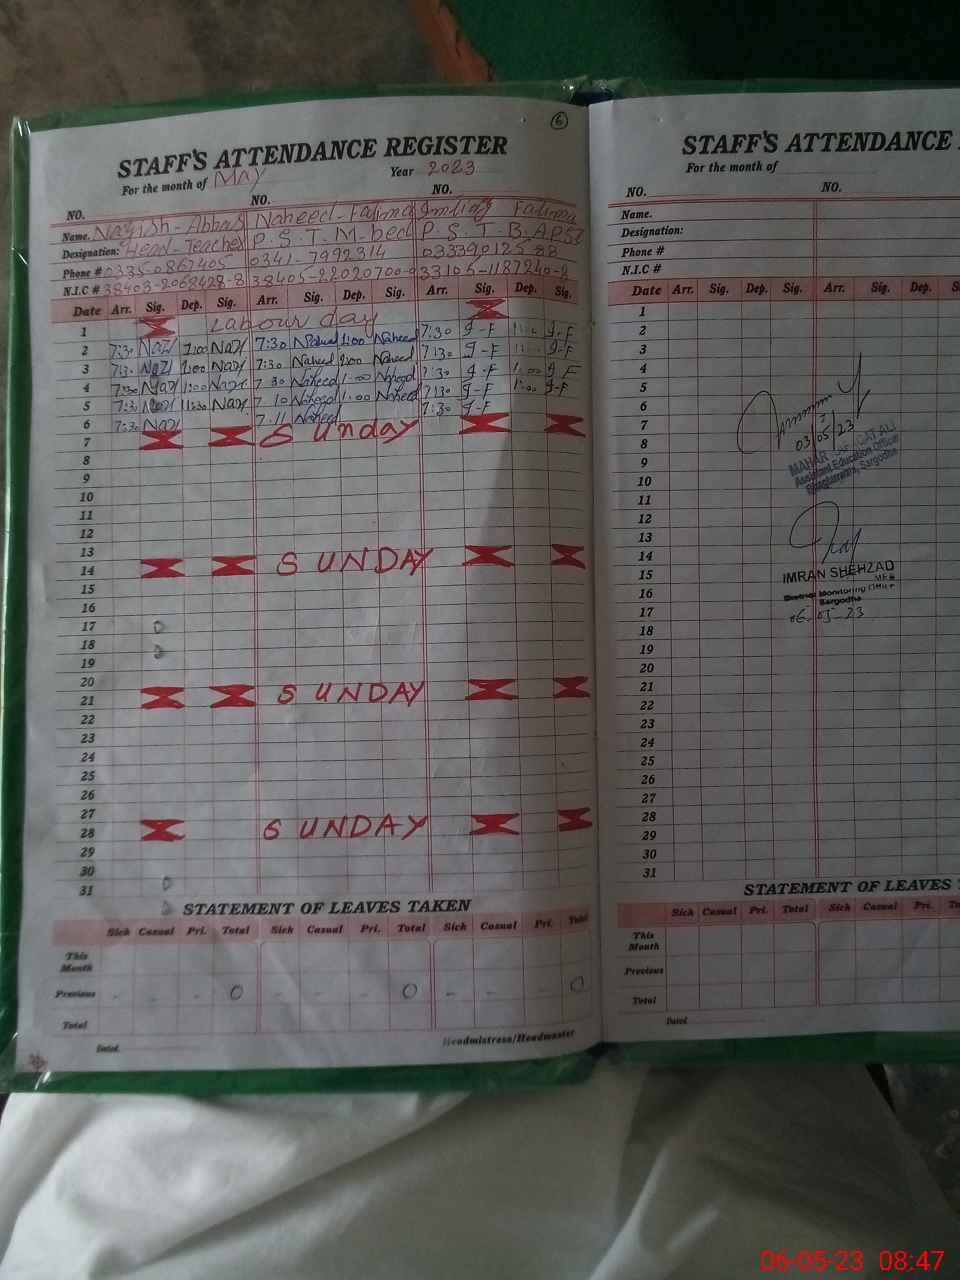 6
STAFF'S ATTENDANCE REGISTER
For the month of May Year 2023
NO. NO. NO.
Name. Naheed-Fatima Fatima
Designation: Head-Teacher P.S.T.M.
Phone # 0335-0867405 0341-7992314
N.I.C # 38403-2068428-8
Date Arr. Sig. Dep. Sig. Arr. Sig. Dep. Sig. Arr. Sig. Dep. Sig.
1 Labour day
2 7:30 Nazi 1:00 Nazi 7:30 Naheed 1:00 Naheed 7:30 g-F 1:00 g-F
3 7:30 Nazi 1:00 Nazi 7:30 Naheed 1:00 Naheed 7:30 g-F 1:00 g-F
4 7:30 Nazi 1:00 Nazi 7 30 Naheed 1:00 Naheed 7:30 g-F 1:00 g F
5 7:30 Nazi 11:30 Nazi 7 10 Naheed 1:00 Naheed 7:30 g-F 1:00 g-F
6 7:30 Nazi 7 11 Naheed 7:30 g-F
7 Sunday
8
9
10
11
12
13
14 SUNDAY
15
16
17
18
19
20
21 SUNDAY
22
23
24
25
26
27
28 SUNDAY
29
30
31
STATEMENT OF LEAVES TAKEN
Sick Casual Pri. Total Sick Casual Pri. Total Sick Casual Pri. Total
This Month
Previous - - - 0 - - - 0 - - - 0
Total
Dated. Headmistress/Headmaster
STAFF'S ATTENDANCE
For the month of
NO. NO.
Name.
Designation:
Phone #
N.I.C #
Date Arr. Sig. Dep. Sig. Arr. Sig. Dep.
1
2
3
4
5
6
7
8
9
10
11
12
13
14
15
16
17
18
19
20
21
22
23
24
25
26
27
28
29
30
31
03/05/23
MAHAR ALI
Assistant Education Officer
Sargodha
IMRAN SHEHZAD
District Monitoring Officer
Sargodha
06-05-23
STATEMENT OF LEAVES
Sick Casual Pri. Total Sick Casual Pri.
This Month
Previous
Total
Dated.
06-05-23 08:47